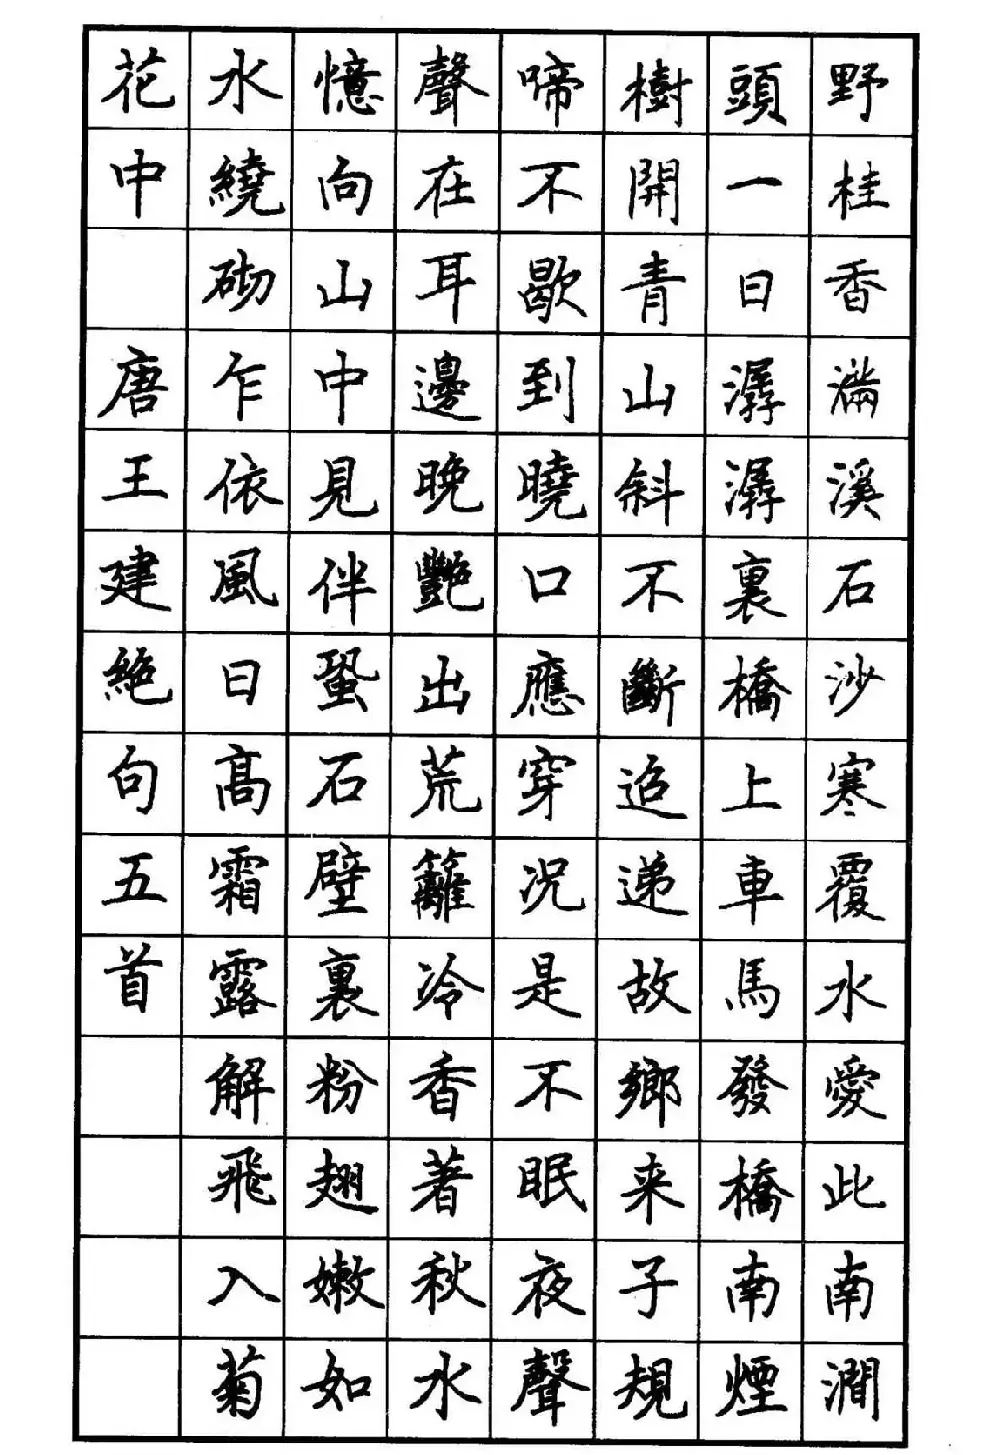 野桂香滿溪石沙寒覆水愛此南澗
頭一日潺潺裏橋上車馬發橋南煙
樹開青山斜不斷迢遞故鄉来子規
啼不歇到曉口應穿況是不眠夜聲
聲在耳邊晚艷出荒籬冷香著秋水
憶向山中見伴蛩石壁裏粉翅嫩如
水繞砌乍依風日高霜露解飛入菊
花中 唐王建絕句五首